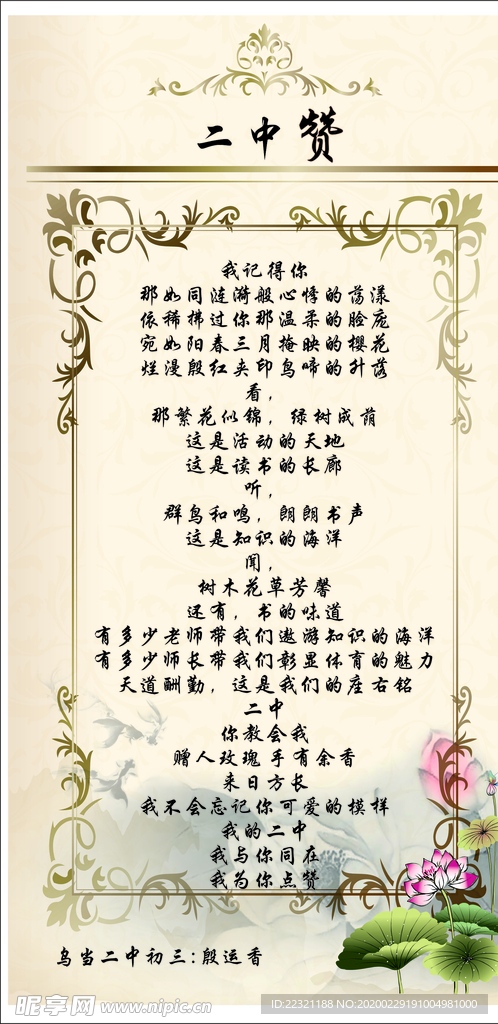 二中赞
我记得你
那如同涟漪般心悸的荡漾
依稀拂过你那温柔的脸庞
宛如阳春三月掩映的樱花
烂漫殷红夹印鸟啼的升落
看，
那繁花似锦，绿树成荫
这是活动的天地
这是读书的长廊
听，
群鸟和鸣，朗朗书声
这是知识的海洋
闻，
树木花草芳馨
还有，书的味道
有多少老师带我们遨游知识的海洋
有多少师长带我们彰显体育的魅力
天道酬勤，这是我们的座右铭
二中
你教会我
赠人玫瑰手有余香
来日方长
我不会忘记你可爱的模样
我的二中
我与你同在
我为你点赞
乌当二中初三:殷运香
昵享网 www.nipic.cn
ID:22321188 NO:20200229191004981000